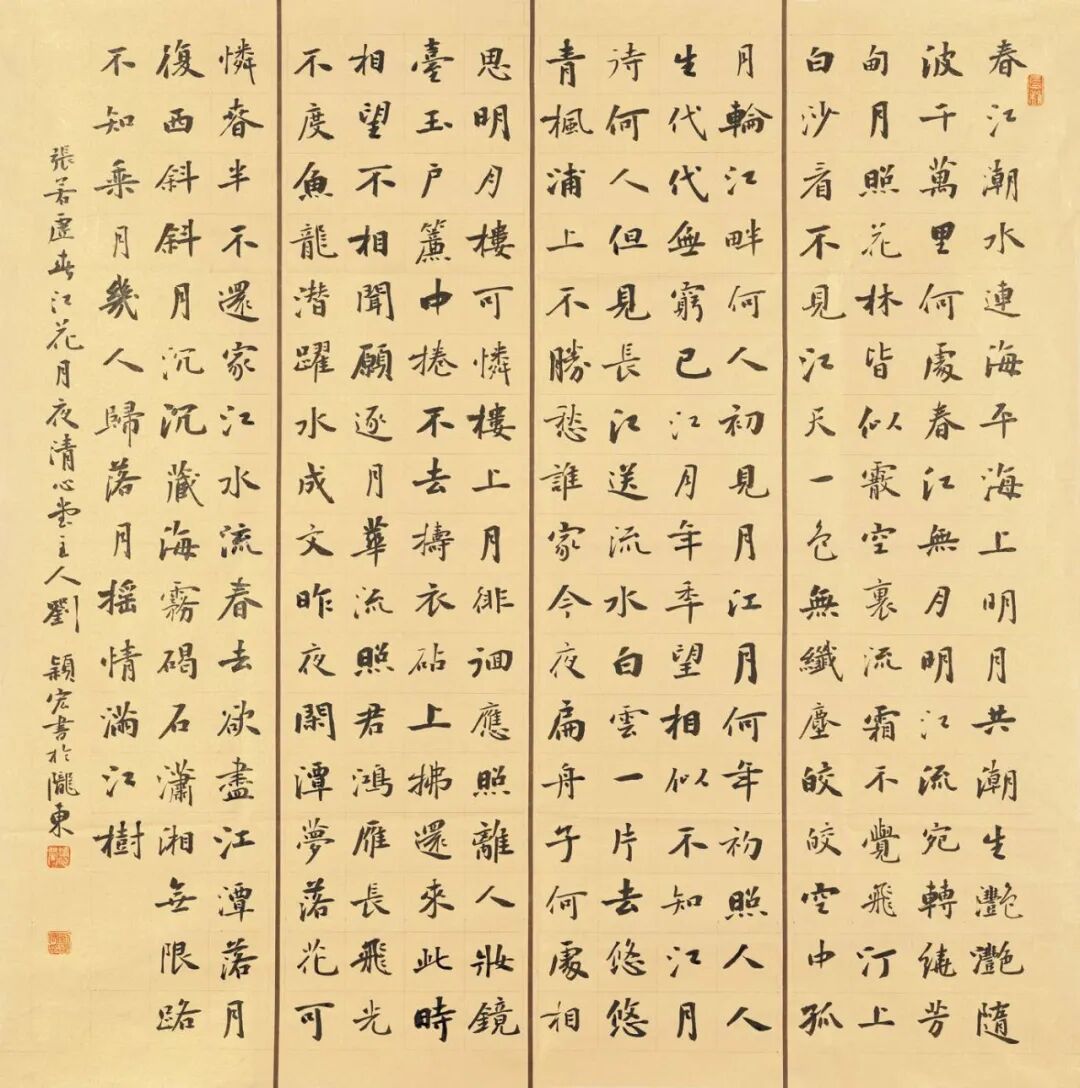 春江潮水連海平海上明月共潮生灩灩隨
波千萬里何處春江無月明江流宛轉繞芳
甸月照花林皆似霰空裏流霜不覺飛汀上
白沙看不見江天一色無纖塵皎皎空中孤
月輪江畔何人初見月江月何年初照人人
生代代無窮已江月年年望相似不知江月
待何人但見長江送流水白雲一片去悠悠
青楓浦上不勝愁誰家今夜扁舟子何處相
思明月樓可憐樓上月徘徊應照離人妝鏡
臺玉戶簾中捲不去擣衣砧上拂還來此時
相望不相聞願逐月華流照君鴻雁長飛光
不度魚龍潛躍水成文昨夜閑潭夢落花可
憐春半不還家江水流春去欲盡江潭落月
復西斜斜月沉沉藏海霧碣石瀟湘無限路
不知乘月幾人歸落月搖情滿江樹
張若虛春江花月夜清心堂主人劉穎宏書於隴東